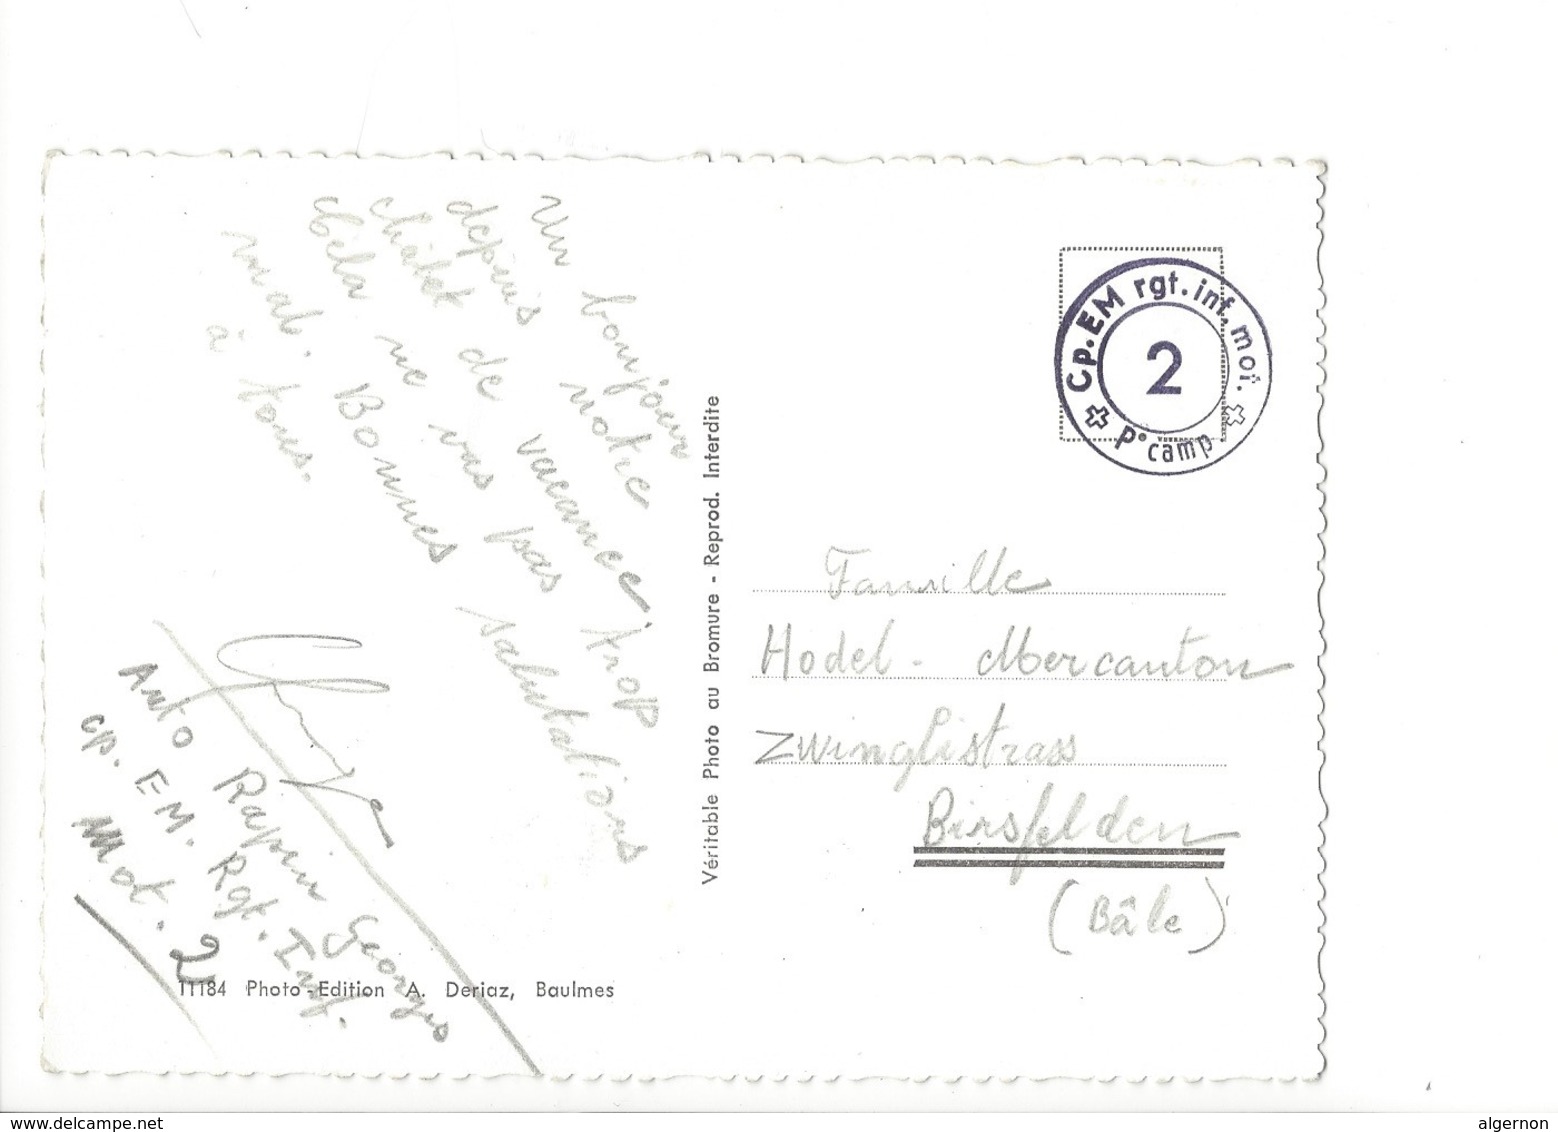 Un bonjour
depuis notre
châlet de vacance.
Cela ne vas pas trop
mal. Bonnes salutations
à tous.
Auto Rapin Georges
cp. EM. Rgt. Inf.
Mot. 2
11184 Photo-Edition A. Deriaz, Baulmes
Véritable Photo au Bromure - Reprod. Interdite
Cp. EM rgt. inf. mot.
2
P° camp
Famille
Hodel - Mercanton
Zwinglistrass
Birsfelden
(Bâle)
www.delcampe.net
algernon